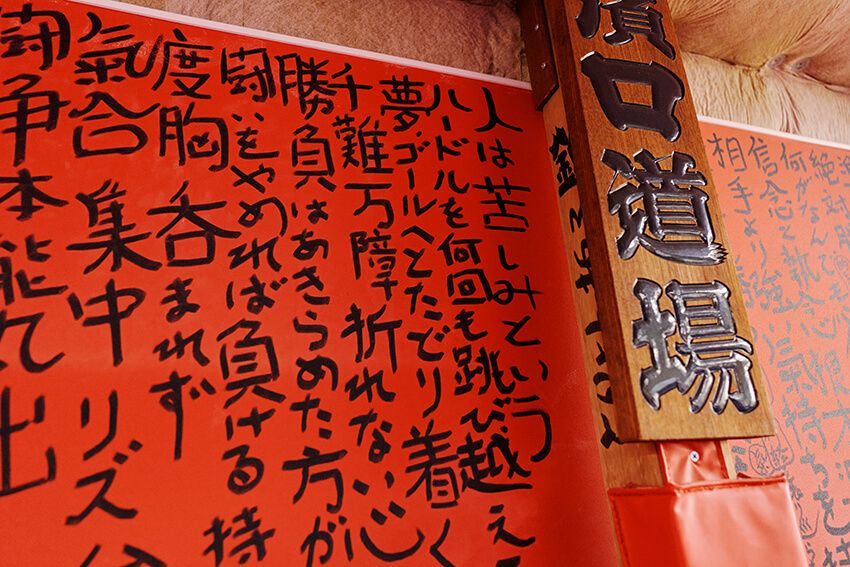 絶対
何がなんでも
信念と執念
相手より強い氣持ちを
濱口道場
人は苦しみという
ハードルを何回も跳び越えて
夢、ゴールへとたどり着く
千難万障折れない心
勝負はあきらめた方が
闘いをやめれば負ける 持
度胸 呑まれず
氣合 集中 リズ
闘争本能 出